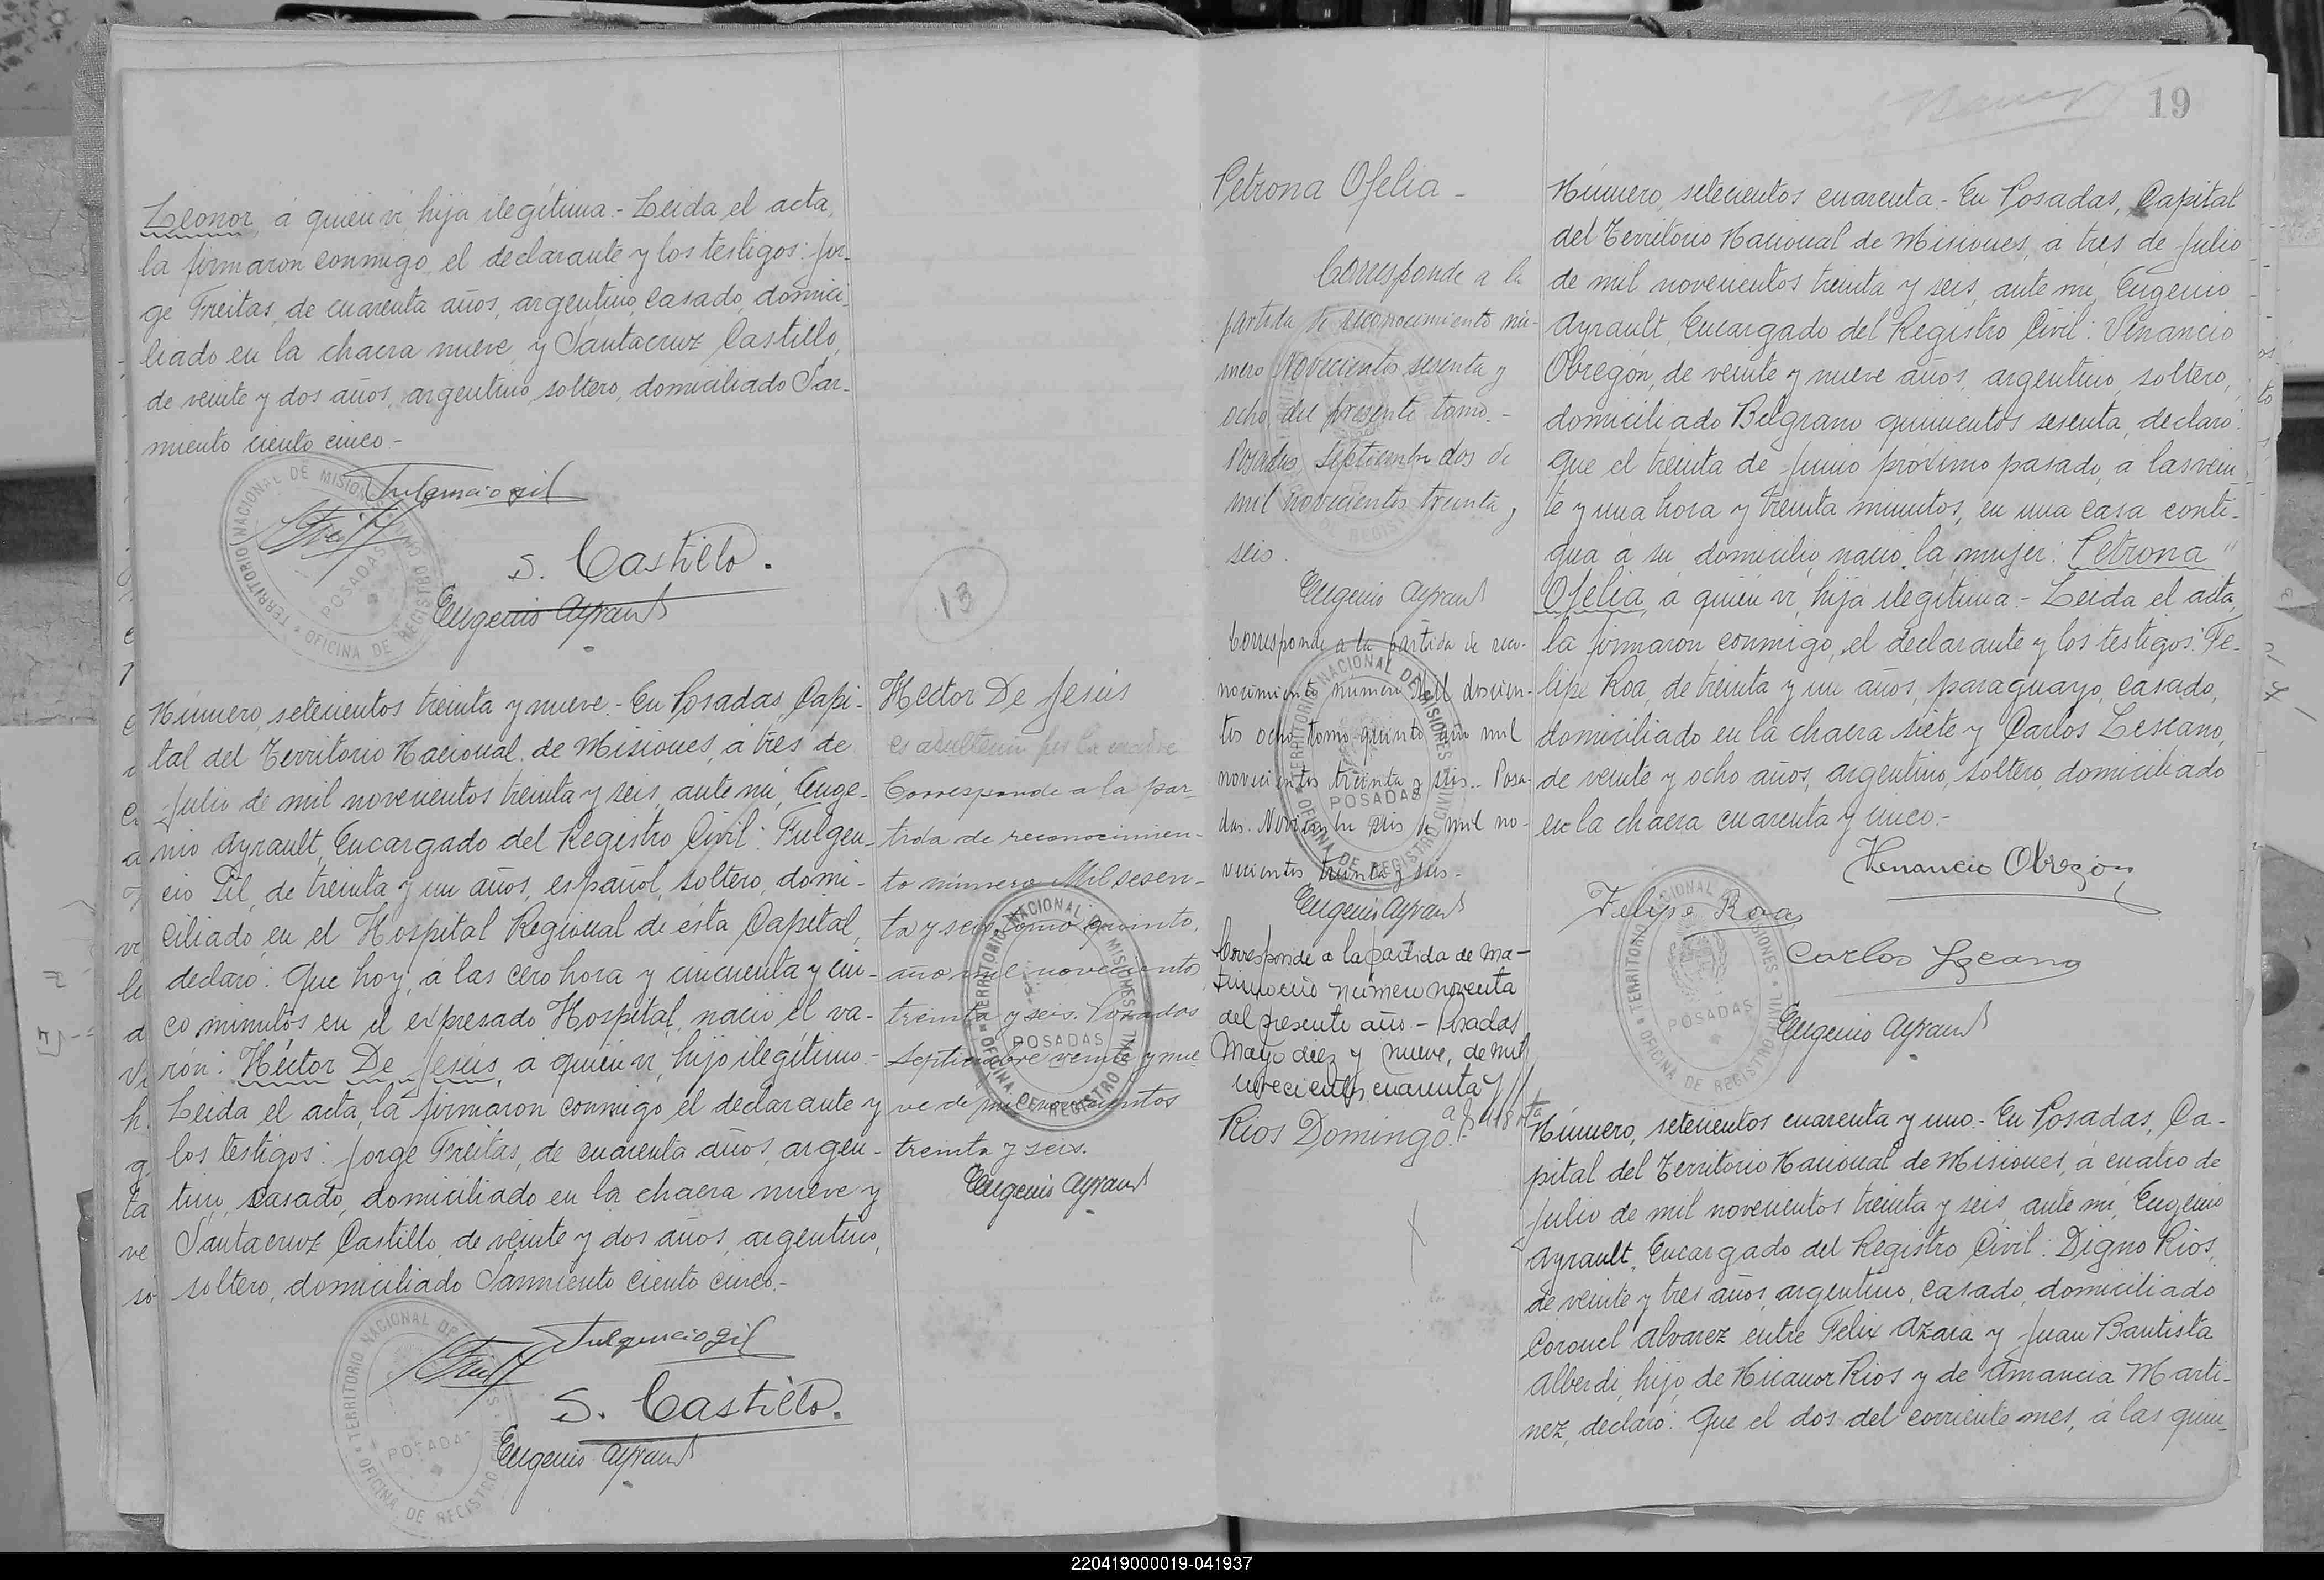 Leonor, á quien vi, hija ilegítima.- Leida el acta,
la firmaron conmigo, el declarante y los testigos: Jor-
ge Freitas, de cuarenta años, argentino, casado, domici-
liado en la chacra nueve y Santacruz Castillo,
de veinte y dos años, argentino, soltero, domiciliado Sar-
miento ciento cinco.-
Fulgencio Gil
S. Castillo.
Eugenio Ayrault
TERRITORIO NACIONAL DE MISIONES
OFICINA DE REGISTRO CIVIL
POSADAS
13
Número, setecientos treinta y nueve.- En Posadas, Capi-
tal del Territorio Nacional de Misiones, á tres de
Julio de mil novecientos treinta y seis, ante mí, Euge-
nio Ayrault, Encargado del Registro Civil: Fulgen-
cio Gil, de treinta y un años, español, soltero, domi-
ciliado en el Hospital Regional de ésta Capital,
declaró: Que hoy, á las cero hora y cincuenta y cin-
co minutos, en el expresado Hospital, nació el va-
rón: Héctor De Jesús, á quien vi, hijo ilegítimo.-
Leida el acta, la firmaron conmigo él declarante y
los testigos: Jorge Freitas, de cuarenta años, argen-
tino, casado, domiciliado en la chacra nueve y
Santacruz Castillo, de veinte y dos años, argentino,
soltero, domiciliado Sarmiento ciento cinco.-
Fulgencio Gil
S. Castillo.
Eugenio Ayrault
TERRITORIO NACIONAL DE MISIONES
OFICINA DE REGISTRO
POSADAS
Hector De Jesús
es adulterin por la madre
Corresponde a la par-
tida de reconocimien-
to número Mil sesen-
ta y seis, tomo quinto,
año mil novecientos
treinta y seis. Posadas
Septiembre veinte y nue-
ve de mil novecientos
treinta y seis.
Eugenio Ayrault
TERRITORIO NACIONAL DE MISIONES
OFICINA DE REGISTRO CIVIL
POSADAS
19
Petrona Ofelia -
Corresponde a la
partida de reconocimiento nú-
mero Novecientos sesenta y
ocho del presente tomo.-
Posadas, Septiembre dos de
mil novecientos treinta y
seis.
Eugenio Ayrault
Corresponde a la partida de reco-
nocimiento numero Mil doscien-
tos ocho, tomo quinto, año mil
novecientos treinta y seis.- Posa-
das. Noviembre seis de mil no-
vecientos treinta y seis.-
Eugenio Ayrault
TERRITORIO NACIONAL DE MISIONES
OFICINA DE REGISTRO CIVIL
POSADAS
Corresponde a la partida de ma-
trimonio número noventa
del presente año.- Posadas
Mayo diez y nueve, de mil
novecientos cuarenta y
Rios Domingo.-
Número, setecientos cuarenta.- En Posadas, Capital
del Territorio Nacional de Misiones, á tres de Julio
de mil novecientos treinta y seis, ante mí, Eugenio
Ayrault, Encargado del Registro Civil: Venancio
Obregón, de veinte y nueve años, argentino, soltero,
domiciliado Belgrano quinientos sesenta, declaró:
Que el treinta de Junio próximo pasado, á las vein-
te y una hora y treinta minutos, en una casa conti-
gua á su domicilio, nació la mujer: Petrona
Ofelia, á quien vi, hija ilegítima.- Leida el acta,
la firmaron conmigo, el declarante y los testigos: Fe-
lipe Roa, de treinta y un años, paraguayo, casado,
domiciliado en la chacra siete y Carlos Lescano,
de veinte y ocho años, argentino, soltero, domiciliado
en la chacra cuarenta y cinco.-
Venancio Obregon
Felipe Roa
Carlos Lzcano
Eugenio Ayrault
TERRITORIO NACIONAL DE MISIONES
OFICINA DE REGISTRO CIVIL
POSADAS
Número, setecientos cuarenta y uno.- En Posadas, Ca-
pital del Territorio Nacional de Misiones, á cuatro de
Julio de mil novecientos treinta y seis, ante mí, Eugenio
Ayrault, Encargado del Registro Civil: Digno Rios,
de veinte y tres años, argentino, casado, domiciliado
Coronel Alvarez entre Felix Azara y Juan Bautista
Alberdi, hijo de Nicanor Rios y de Amancia Marti-
nez, declaró: Que el dos del corriente mes, á las quin-
220419000019-041937